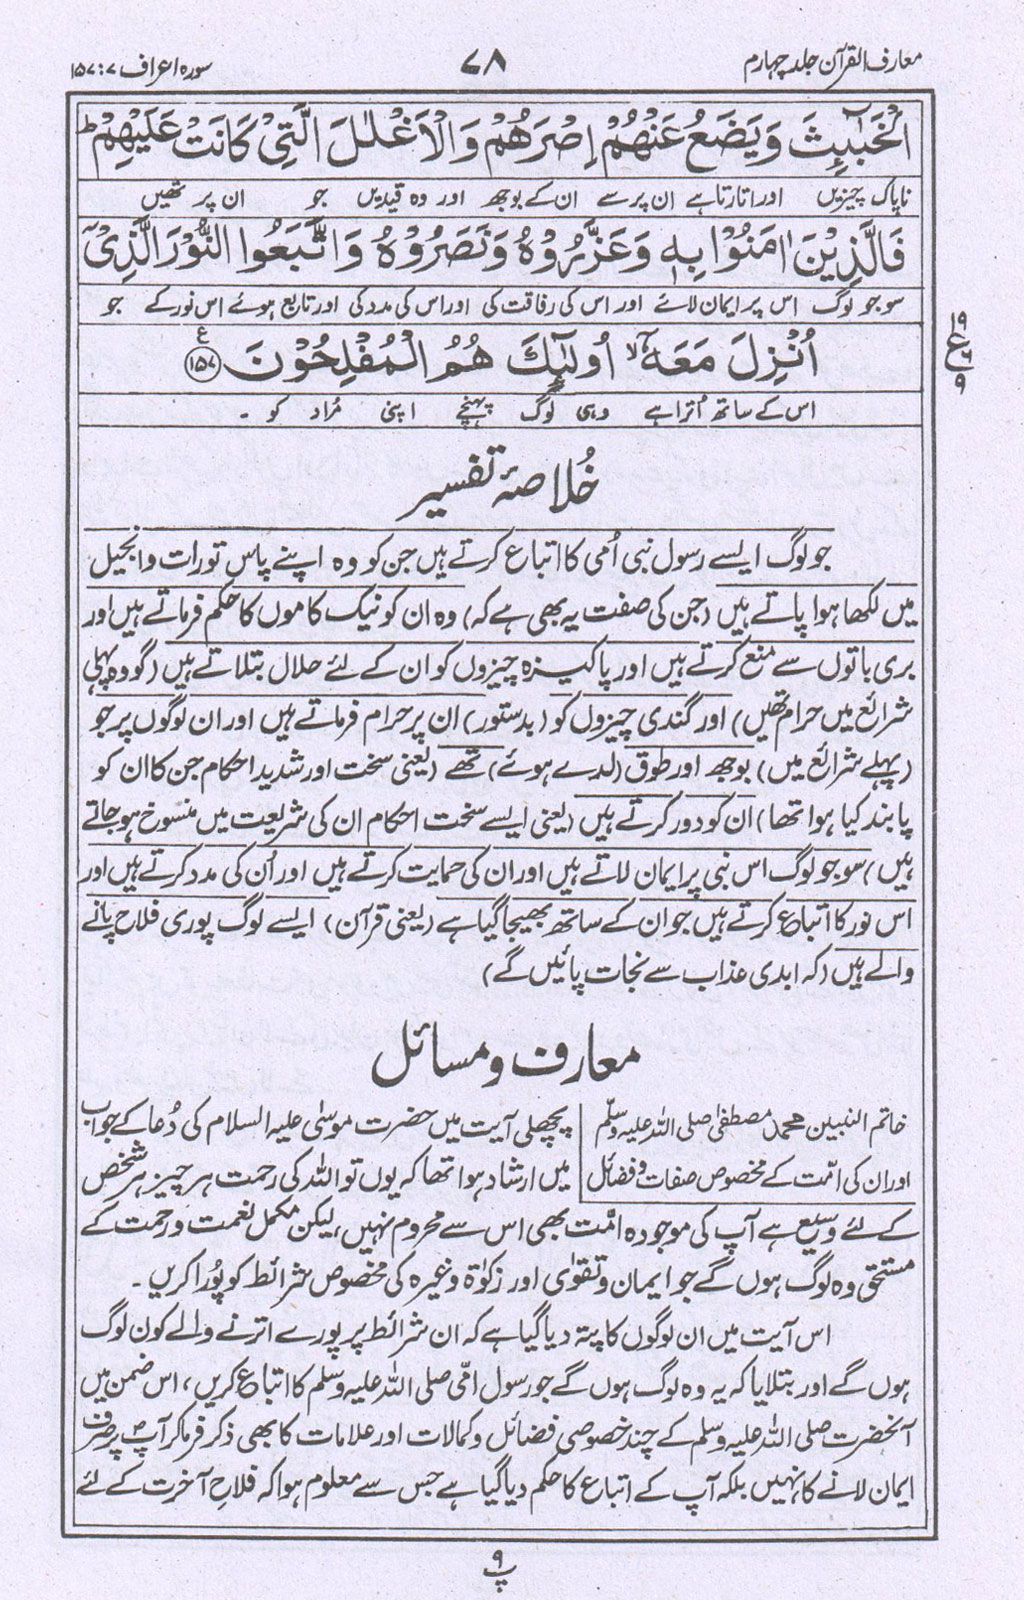 معارف القرآن جلد چہارم
۷۸
سورہ اعراف ۷ : ۱۵۷
الْخَبٰٓئِثَ وَيَضَعُ عَنْهُمْ اِصْرَهُمْ وَالْاَغْلٰلَ الَّتِیْ كَانَتْ عَلَيْهِمْ ؕ
ناپاک چیزیں اور اتارتا ہے ان پر سے ان کے بوجھ اور وہ قیدیں جو ان پر تھیں
فَالَّذِيْنَ اٰمَنُوْا بِهٖ وَعَزَّرُوْهُ وَنَصَرُوْهُ وَاتَّبَعُوا النُّوْرَ الَّذِیْۤ
سو جو لوگ اس پر ایمان لائے اور اس کی رفاقت کی اور اس کی مدد کی اور تابع ہوئے اس نور کے جو
اُنْزِلَ مَعَهٗۤ ۙ اُولٰٓئِكَ هُمُ الْمُفْلِحُوْنَ ﴿۱۵۷﴾ ع
۱۹
ع
۶
۹
اس کے ساتھ اُترا ہے وہی لوگ پہنچے اپنی مُراد کو ۔
خُلاصۂ تفسیر
جو لوگ ایسے رسول نبی اُمی کا اتباع کرتے ہیں جن کو وہ اپنے پاس تورات و انجیل
میں لکھا ہوا پاتے ہیں (جن کی صفت یہ بھی ہے کہ) وہ ان کو نیک کاموں کا حکم فرماتے ہیں اور
بری باتوں سے منع کرتے ہیں اور پاکیزہ چیزوں کو ان کے لئے حلال بتلاتے ہیں (گو وہ پہلی
شرائع میں حرام تھیں) اور گندی چیزوں کو (بدستور) ان پر حرام فرماتے ہیں اور ان لوگوں پر جو
(پہلے شرائع میں) بوجھ اور طوق (لدے ہوئے) تھے (یعنی سخت اور شدید احکام جن کا ان کو
پابند کیا ہوا تھا) ان کو دور کرتے ہیں (یعنی ایسے سخت احکام ان کی شریعت میں منسوخ ہو جاتے
ہیں) سو جو لوگ اس نبی پر ایمان لاتے ہیں اور ان کی حمایت کرتے ہیں اور اُن کی مدد کرتے ہیں اور
اس نور کا اتباع کرتے ہیں جو ان کے ساتھ بھیجا گیا ہے (یعنی قرآن) ایسے لوگ پوری فلاح پانے
والے ہیں (کہ ابدی عذاب سے نجات پائیں گے)
معارف و مسائل
خاتم النبیین محمد مصطفیٰ صلی اللہ علیہ وسلم
اور ان کی امّت کے مخصوص صفات و فضائل
پچھلی آیت میں حضرت موسیٰ علیہ السلام کی دُعا کے جواب
میں ارشاد ہوا تھا کہ یوں تو اللہ کی رحمت ہر چیز ہر شخص
کے لئے وسیع ہے آپ کی موجودہ امّت بھی اس سے محروم نہیں، لیکن مکمل نعمت و رحمت کے
مستحق وہ لوگ ہوں گے جو ایمان و تقویٰ اور زکوٰۃ وغیرہ کی مخصوص شرائط کو پُورا کریں ۔
اس آیت میں ان لوگوں کا پتہ دیا گیا ہے کہ ان شرائط پر پورے اترنے والے کون لوگ
ہوں گے اور بتلایا کہ یہ وہ لوگ ہوں گے جو رسول امّی صلی اللہ علیہ وسلم کا اتباع کریں، اس ضمن میں
آنحضرت صلی اللہ علیہ وسلم کے چند خصوصی فضائل و کمالات اور علامات کا بھی ذکر فرما کر آپؐ پر صرف
ایمان لانے کا نہیں بلکہ آپ کے اتباع کا حکم دیا گیا ہے جس سے معلوم ہوا کہ فلاحِ آخرت کے لئے
۹
پ